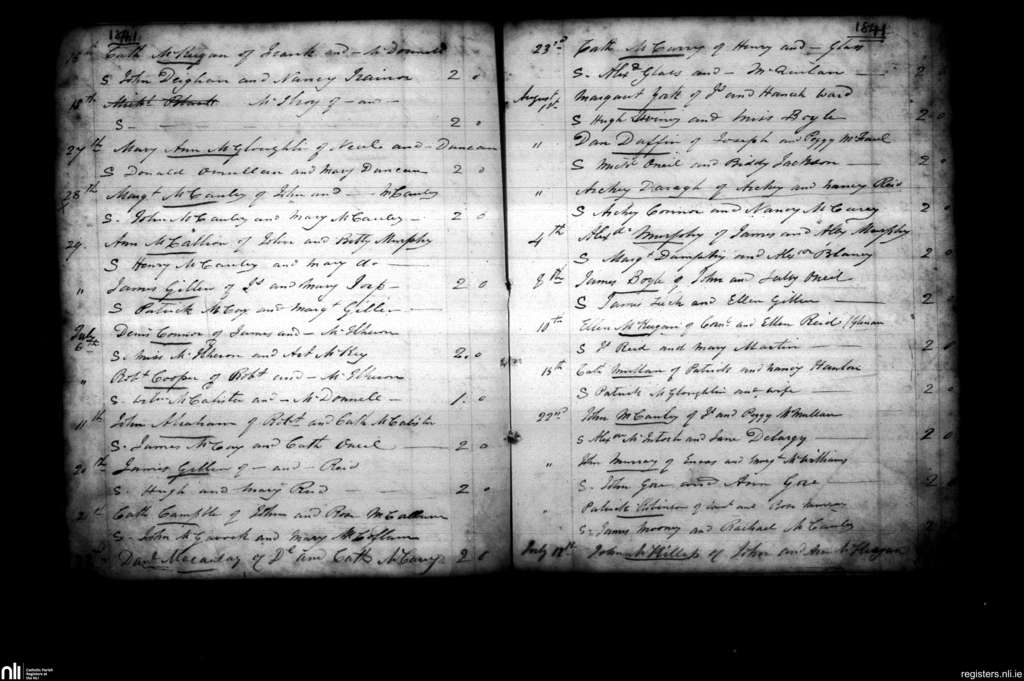 1841
18th Cath McKeegan of Frank and - McDonnell
S John Deighan and Nancy Trainor 2 0
18th McIlroy of - and -
S - 2 0
27th Mary Ann McGloughlin of Neale and - Duncan
S Donald Omullan and Mary Duncan 2 0
28th Margt McCauley of John and - McCauley
S. John McCauley and Mary McCauley - 2 0
29. Ann McCallion of John and Betty Murphy
S Henry McCauley and Mary do -
" James Gillen of Js and Mary - 2 0
S Patrick McCoy and Margt Gillen -
July 6th Denis Connor of James and - McIlheron
S. Miss McIlheron and Art McKey 2. 0
" Robt Cooper of Robt and - McIlheron
S. McAlister and - McDonnell - 1. 0
11th John Abraham of Robt and Cath McAlister
S. James McCoy and Cath Oneil - 2 0
20th James Gillen of - and - Reid
S. Hugh and Mary Reid - 2 0
Cath Campble of John and Rose McCallum
S. John McGavock and Mary
Danl Macauley of Dl and Cath McCarry 2 0
1841
23rd Cath McCarry of Henry and - Glass
S. Alexd Glass and - McQuilan - 2 0
August 1st. Margaret of Js and Hannah Ward
S Hugh and Miss Boyle 2 0
" Dan Duffin of Joseph and Peggy McFaul
S Oneil and Biddy Jackson - 2 0
" Archey Daragh of Archey and Nancy Reid
S Archey Connor and Nancy McCurey 2 0
4th Alexdr Murphy of James and Alex Murphy
S Margt Dempsey and Blaney 2 0
8th James Boyle of John and Oneil
S James and Ellen Gillen - 2 0
10th Ellen McKeegan of and Ellen Reid
S Js Reid and Mary Martin - 2 0
15th Cath Mullan of Patrick and Nancy Hanlon
S Patrick McGloughlin and wife - 2 0
22nd John McCauley of Js and Peggy McMullan
S McIntosh and Jane Delargy - 2 0
" John Murray of and Margt McWilliams
S. John Gore and Ann Gore - 2 0
" Patrick Robinson of and Rose
S. James Mooney and Rachael McCauley 2
July 18th John McPhillips of John and Ann McKeegan
nli Catholic Parish Registers at the NLI
registers.nli.ie